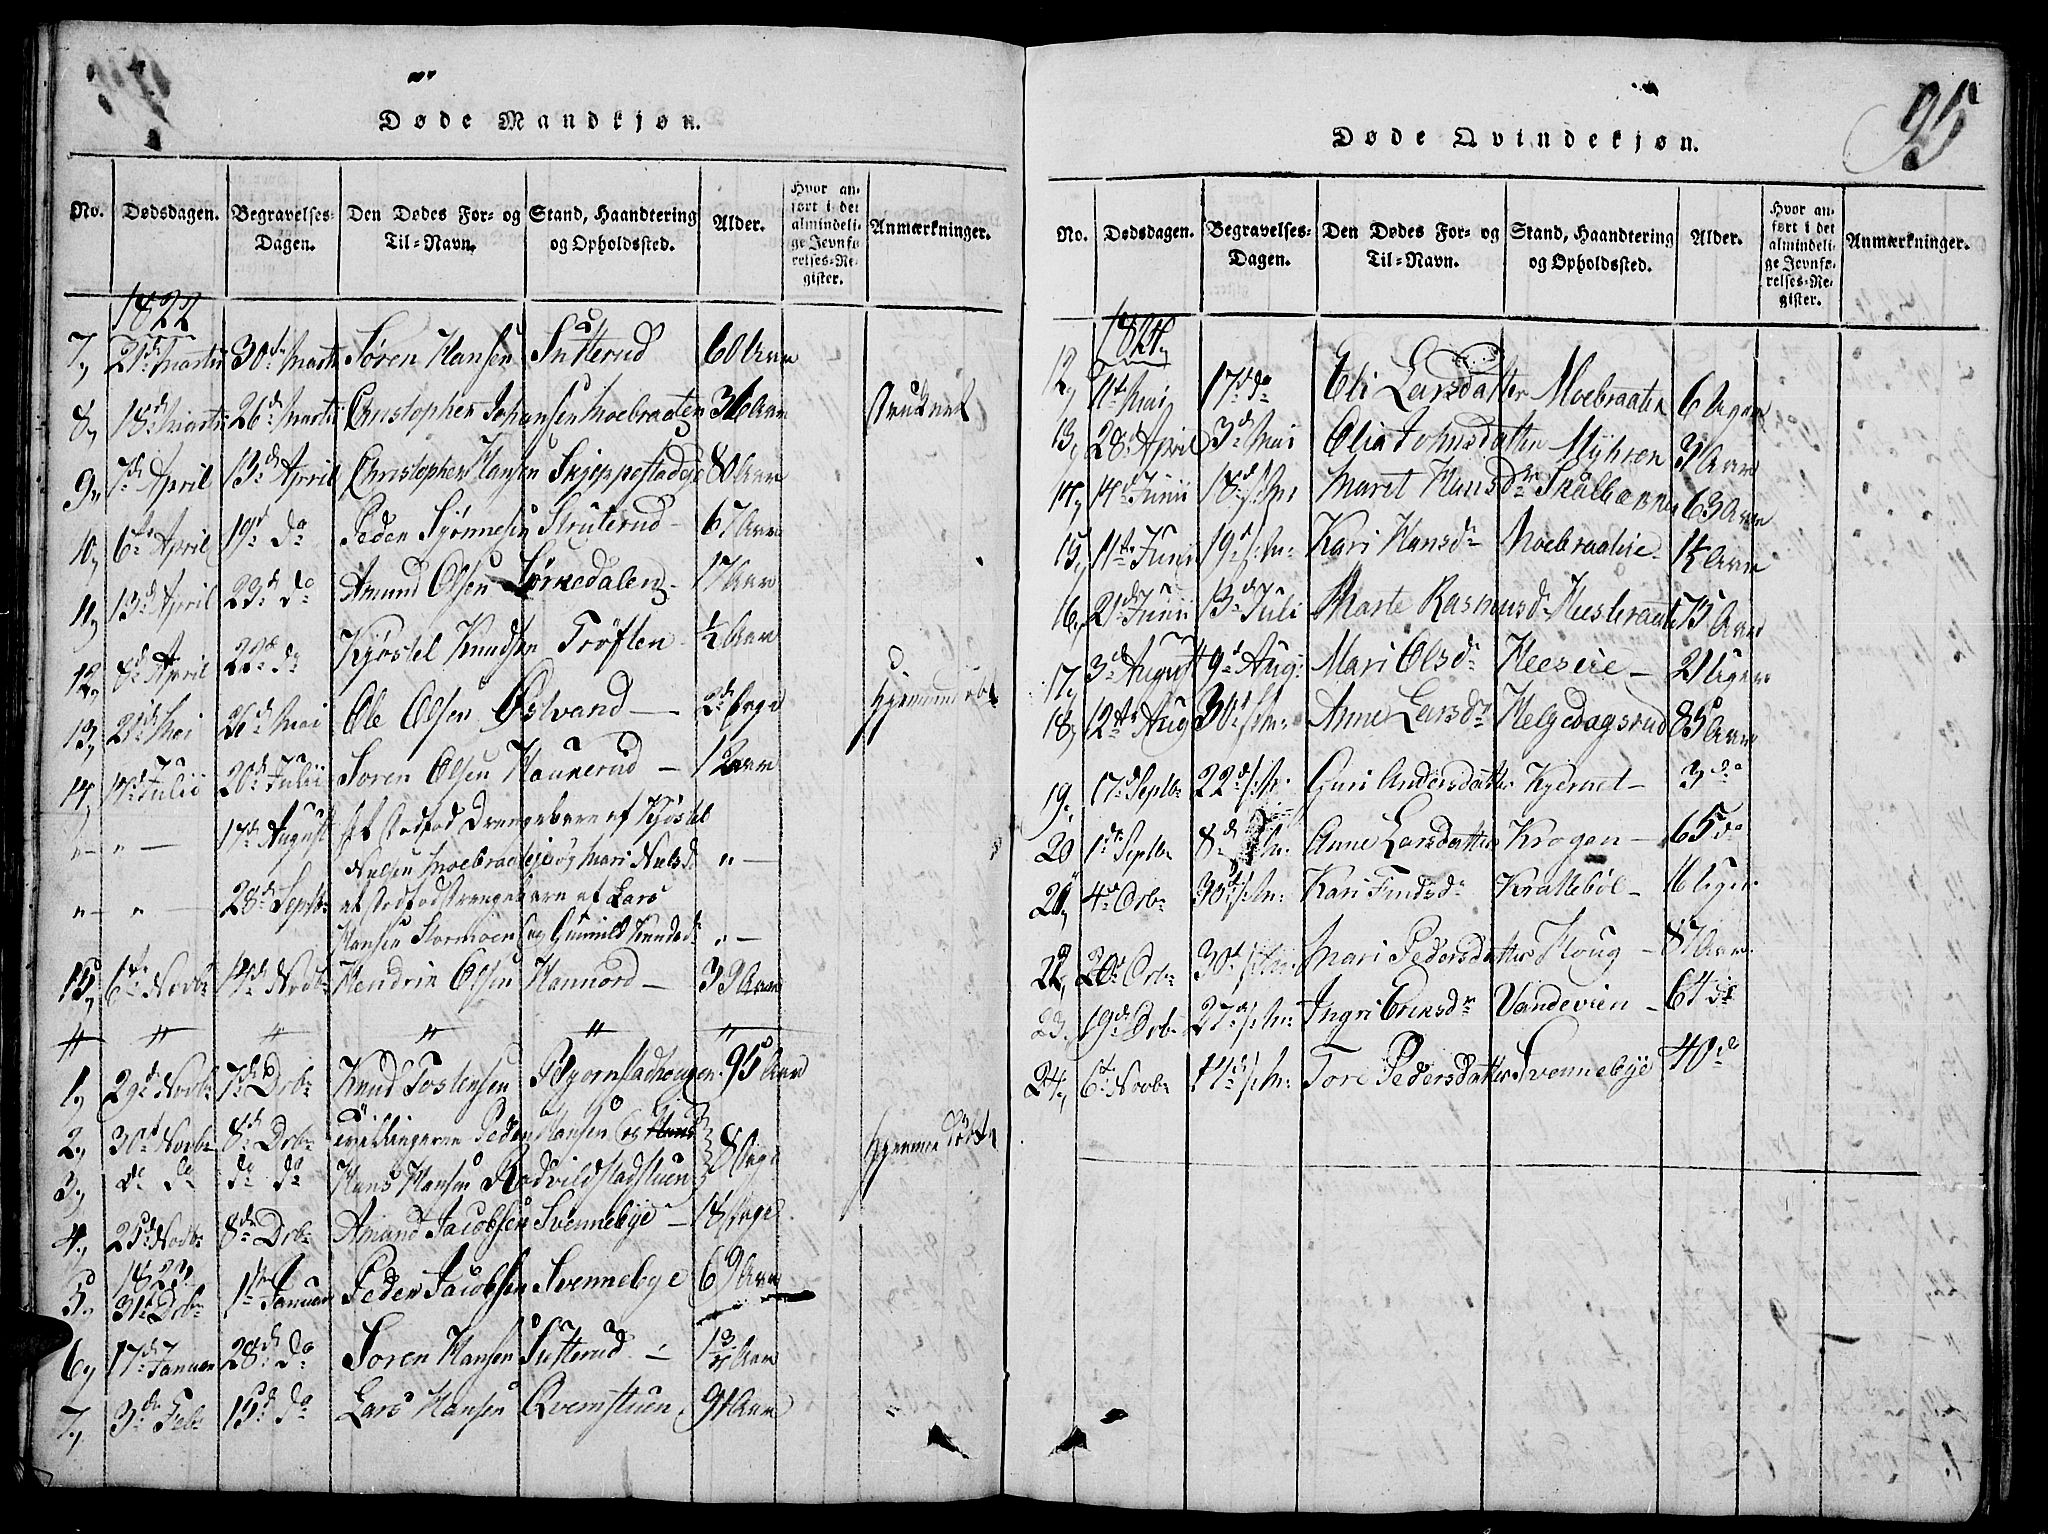 95
Døde Mandkjøn.
No. Dødsdagen. Begravelses-Dagen. Den Dødes For- og Til-Navn. Stand, Haandtering og Opholdssted. Alder. Hvor anført i det almindelige Jevnførelses-Register. Anmærkninger.
1822
7, 21de Martii 30te Martii Søren Hansen Sutterud 60 Aar
8, 18de Martii 26de Martii Christopher Johansen Moebraaten 36 Aar druknet
9, 7de April 13de April Christopher Hansen Skjeppestadeje 80 Aar
10, 6te April 19de do Peder Sjønnesen Struterud 67 Aar
11, 13de April 23de do Amund Olsen Lørkedalen 17 Aar
12, 8de April 22de do Kjøstel Knudsen Trøften ½ Aar
13, 21de Mai 26de Mai Ole Olsen Østvand 2de Dage hjemmedøbt
14, 14de Julii 20de Julii Søren Olsen Haunerud 12 Aar
" " 17de August et dødfød Drengebarn af Kjøstel
Nielsen Moebraateje og Mari Nielsd. "
" " 28de Septbr et dødfød Drengebarn af Lars
Hansen Stormoen og Gunild Knudsdr "
15, 6te Novbr 14de Novbr Hendrik Olsen Hannord 39 Aar
" " " " " "
1, 29de Novbr 7de Decbr Knud Tostensen Bjørnstadhougen 95 Aar
2, 30te Novbr 8de Decbr Tvillingerne Peder Hansen og
3, do do do do Hans Hansen Rodvildstadstuen 8 Dage hjemmedøbt
4, 25de Novbr 8de Decbr Amund Jacobsen Svennebye 18 Dage
1822
5, 31te Decbr 1ste Januar Peder Jacobsen Svennebye 69 Aar
6, 17de Januar 28de do Søren Hansen Sutterud 1¾ Aar
7, 3die Febr 15de do Lars Hansen Qvernstuen 91 Aar
Døde Qvindekjøn.
No. Dødsdagen. Begravelses-Dagen. Den Dødes For- og Til-Navn. Stand, Haandtering og Opholdssted. Alder. Hvor anført i det almindelige Jevnførelses-Register. Anmærkninger.
1824,
12, 11te Mai 17de do Eli Larsdatter Moebraaten 6 Uger
13, 28de April 3de Mai Olia Johnsdatter Myhren 31 Aar
14, 14de Junii 18de s.M. Maret Hansdr Skalbakken 63 Aar
15, 11te Junii 19de s.M. Kari Hansdr Moebraateie 1½ Aar
16, 21de Junii 13de Juli Marte Rasmusdr Hestbraaten 75 Aar
17, 3de August 9de Aug. Mari Olsdr Heeseie 2 Uger
18, 12te Aug 30te s.M. Anne Larsdr Helgedagsrud 85 Aar
19, 17de Septbr 22de s.M. Guri Andersdatter Kjernet 3 do
20 1ste Septbr 8de s.M. Anne Larsdatter Krogen 65 do
21, 4de Octbr 30te s.M. Kari Knudsdr Krattebøl 16 Uger
22, 20de Octbr 30te s.M. Mari Pedersdatter Houg 87 Aar
23, 19de Octbr 27de s.M. Ingri Eriksdr Vandevien 64 do
24, 6te Novbr 14de s.M. Tore Pedersdatter Svennebye 40 do